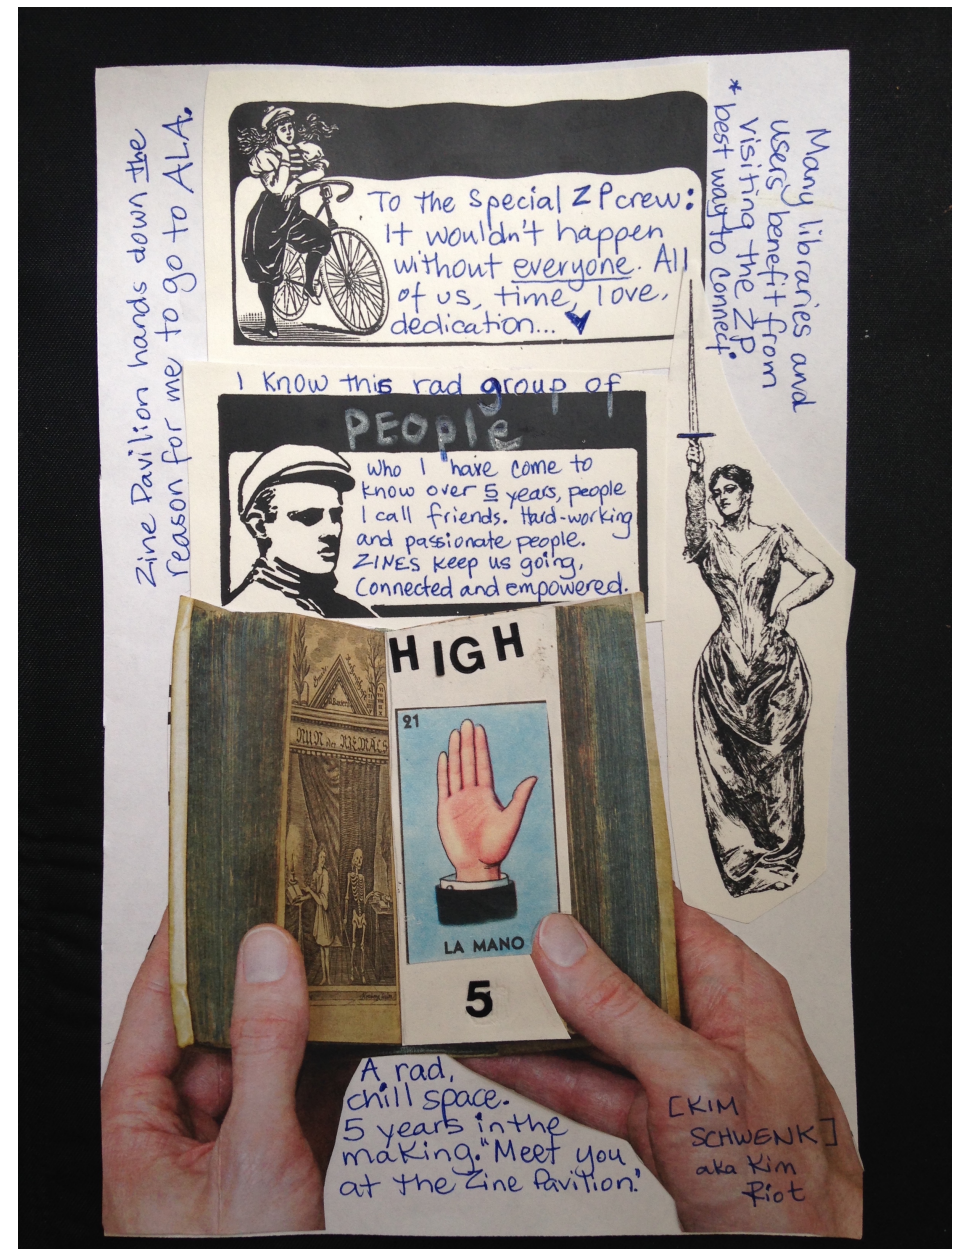 Zine Pavilion hands down the
reason for me to go to ALA.
To the special ZP crew:
It wouldn't happen
without everyone. All
of us, time, love,
dedication...
Many libraries and
users benefit from
visiting the ZP
* best way to connect.
I know this rad group of
PEOPle
who I have come to
know over 5 years, people
I call friends. Hard-working
and passionate people.
ZINES keep us going,
Connected and empowered.
HIGH
NUN der NIEMALS
21
LA MANO
5
A rad,
chill space.
5 years in the
making. "Meet you
at the Zine Pavilion."
[KIM
SCHWENK]
aka Kim
Riot